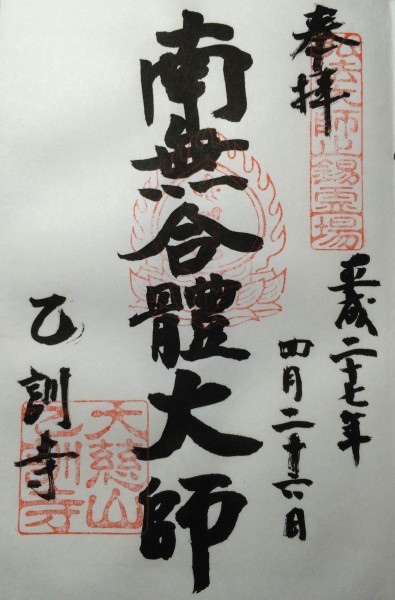 奉拝
弘法大師止錫霊場
平成二十七年
四月二十六日
南無合體大師
乙訓寺
大慈山
乙訓寺